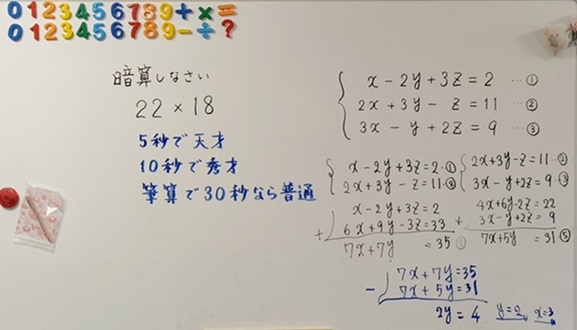 0123456789+×=
0123456789-÷?
暗算しなさい
22×18
5秒で天才
10秒で秀才
筆算で30秒なら普通
x-2y+3z=2 …①
2x+3y-z=11 …②
3x-y+2z=9 …③
x-2y+3z=2 …①
2x+3y-z=11 …②
x-2y+3z=2
+ 6x+9y-3z=33
7x+7y =35 ④
2x+3y-z=11 …②
3x-y+2z=9 …③
4x+6y-2z=22
+ 3x-y+2z=9
7x+5y =31 ⑤
7x+7y=35
- 7x+5y=31
2y=4 y=2, x=3